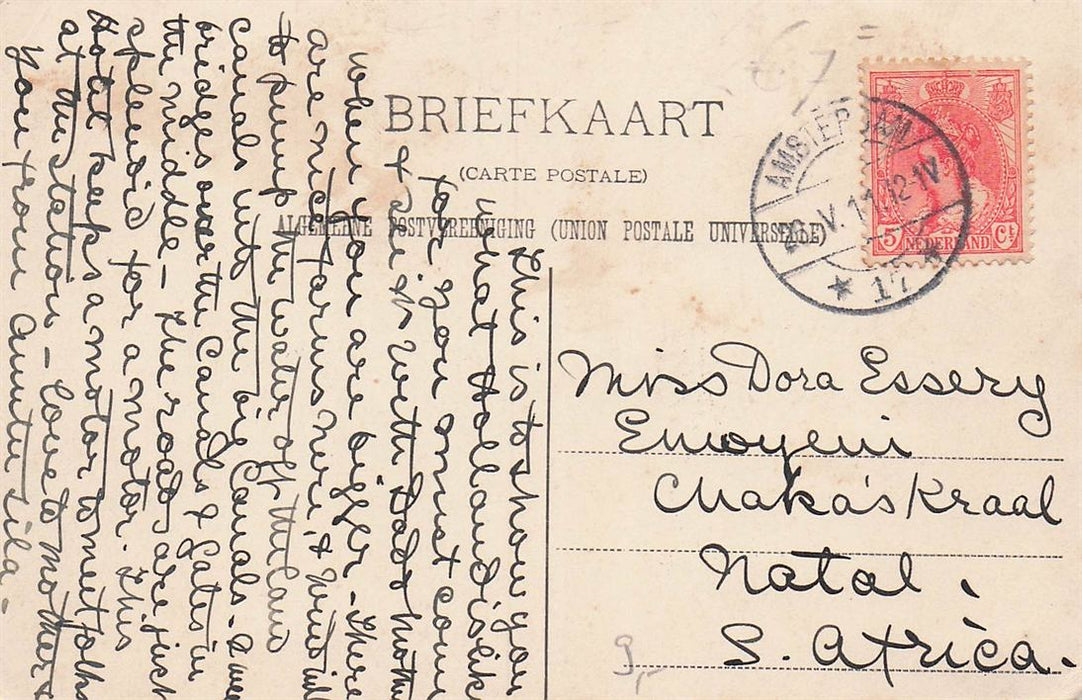 BRIEFKAART
(CARTE POSTALE)
ALGEMEENE POSTVEREENIGING (UNION POSTALE UNIVERSELLE)
AMSTERDAM
26.V.11.12-1V
★ 17 ★
5 NEDERLAND Ct
This is to show you
what Holland is like
for you must come
& see it with Dad & Mother
when you are bigger - There
are nice farms here, & windmills
to pump the water off the land
canals into the big Canals.
bridges over the Canals & Gates in
the middle - The roads are just
splendid for a motor. This
Hotel keeps a motor to meet folks
at the station - Love to Mother &
you from Auntie Lila -
Miss Dora Essery
Emoyeni
Chaka's Kraal
Natal,
S. Africa.
9,-